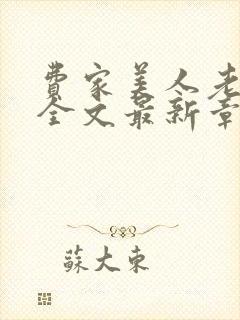 费家美人老
全文最新章
蘇大東